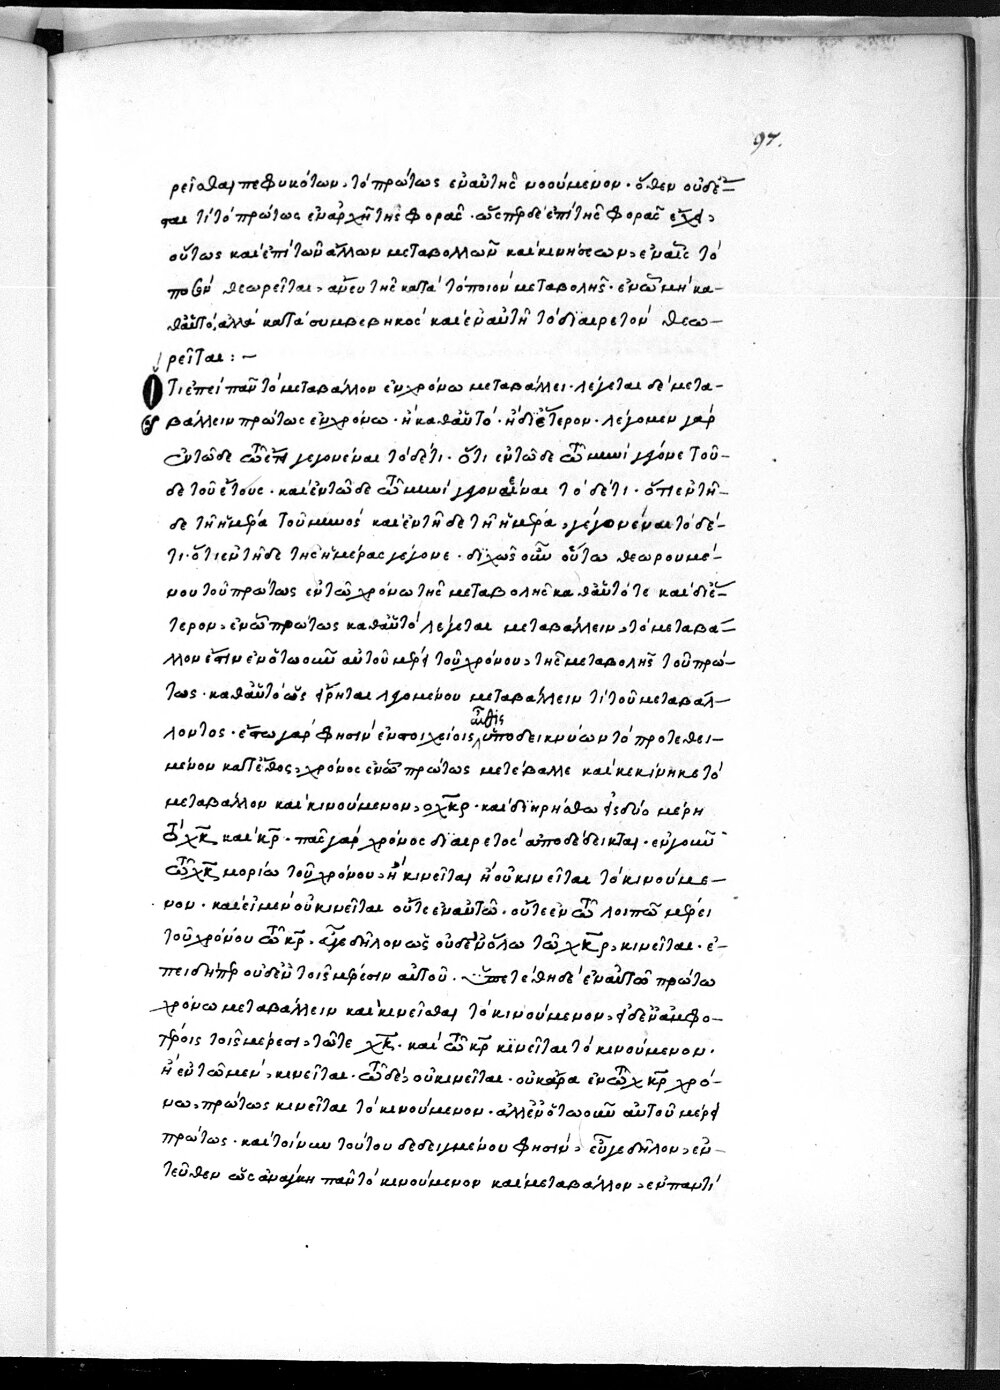 97.
ρεῖσθαι πεφυκότων, τὸ πρώτως ἐν αὐτῆ νοούμενον· ὅθεν οὐδέ
ται τί τὸ πρώτως ἐν ἀρχῇ τῆς φορᾶς· ὥσπερ δὲ ἐπὶ τῆς φορᾶς ἔχει,
οὕτως καὶ ἐπὶ τῶν ἄλλων μεταβολῶν καὶ κινήσεων, ἐν αἷς τὸ
ποσὸν θεωρεῖται, ἄνευ τῆς κατὰ τὸ ποιὸν μεταβολῆς· ἐν ὧ μὴ κα-
θ' αὑτό, ἀλλὰ κατὰ συμβεβηκὸς καὶ ἐν αὐτῆ τὸ διαιρετὸν θεω-
ρεῖται : –
Ὅτι ἐπεὶ πᾶν τὸ μεταβάλλον ἐν χρόνω μεταβάλλει· λέγεται δὲ μετα-
βάλλειν πρώτως ἐν χρόνω· ἢ καθ' αὑτό· ἢ δι' ἕτερον· λέγομεν γὰρ
ἐν τῶδε τῶ ἔτει γεγονέναι τὸ δέ τι· ὅτι ἐν τῶδε τῶ μηνὶ γέγονε τοῦ-
δε τοῦ ἔτους· καὶ ἐν τῶδε τῶ μηνὶ γεγονέναι τὸ δέ τι· ὅτι ἐν τῆ-
δε τῆ ἡμέρα τοῦ μηνός καὶ ἐν τῆδε τῆ ἡμέρα, γεγονέναι τὸ δέ
τι· ὅτι ἐν τῆδε τῆς ἡμέρας γέγονε· διχῶς οὖν οὕτω θεωρουμέ-
νου τοῦ πρώτως ἐν τῶ χρόνω τῆς μεταβολῆς καθ' αὑτό τε καὶ δι' ἕ-
τερον, ἐν ὧ πρώτως καθ' αὑτὸ λέγεται μεταβάλλειν, τὸ μεταβά-
λλον ἔστιν ἐν ὁτωοῦν αὐτοῦ μέρει τοῦ χρόνου, τῆς μεταβολῆς τοῦ πρώ-
τως· καθ' αὑτὸ ὡς εἴρηται λεγομένου μεταβάλλειν τί τοῦ μεταβάλ-
λοντος· ἔστω γάρ φησὶν ἐν στοιχείοις αὖθις ὑποδεικνύων τὸ προτεθει-
μένον χρόνος ἐν ὧ πρώτως μετέβαλλε καὶ κεκίνηκε τὸ
μεταβάλλον καὶ κινούμενον, ὁ χκρ· καὶ διηρήσθω εἰς δύο μέρη
τὸ χκ καὶ κρ· πᾶς γὰρ χρόνος διαιρετὸς ἀποδέδεικται· ἐν γοῦν
τῶ χκ μορίω τοῦ χρόνου, ἢ κινεῖται ἢ οὐ κινεῖται τὸ κινούμε-
νον· καὶ εἰ μὲν οὐ κινεῖται οὔτε ἐν αὐτῶ· οὔτε ἐν τῶ λοιπῶ μέρει
τοῦ χρόνου τῶ κρ, εὔδηλον ὡς οὐδ' ἐν ὅλω τῶ χκρ, κινεῖται· ἐ-
πειδήπερ οὐδὲν τοῖς μέρεσιν αὐτοῦ· ὑπετέθη δὲ ἐν αὐτῶ πρώτω
χρόνω μεταβάλλειν καὶ κινεῖσθαι τὸ κινούμενον, εἰ δ' ἐν ἀμφο-
τέροις τοῖς μέρεσι, τῶ τε χκ· καὶ τῶ κρ κινεῖται τὸ κινούμενον·
ἢ ἐν τῶ μέν, κινεῖται· τῶ δέ, οὐ κινεῖται· οὐκ ἄρα ἐν τῶ χκρ χρό-
νω, πρώτως κινεῖται τὸ κινούμενον· ἀλλ' ἐν ὁτωοῦν αὐτοῦ μέρει
πρώτως· καὶ τοίνυν τούτου δεδειγμένου φησίν, εὔδηλον, ἐν-
τεῦθεν ὡς ἀνάγκη πᾶν τὸ κινούμενον καὶ μεταβάλλον, ἐν παντὶ